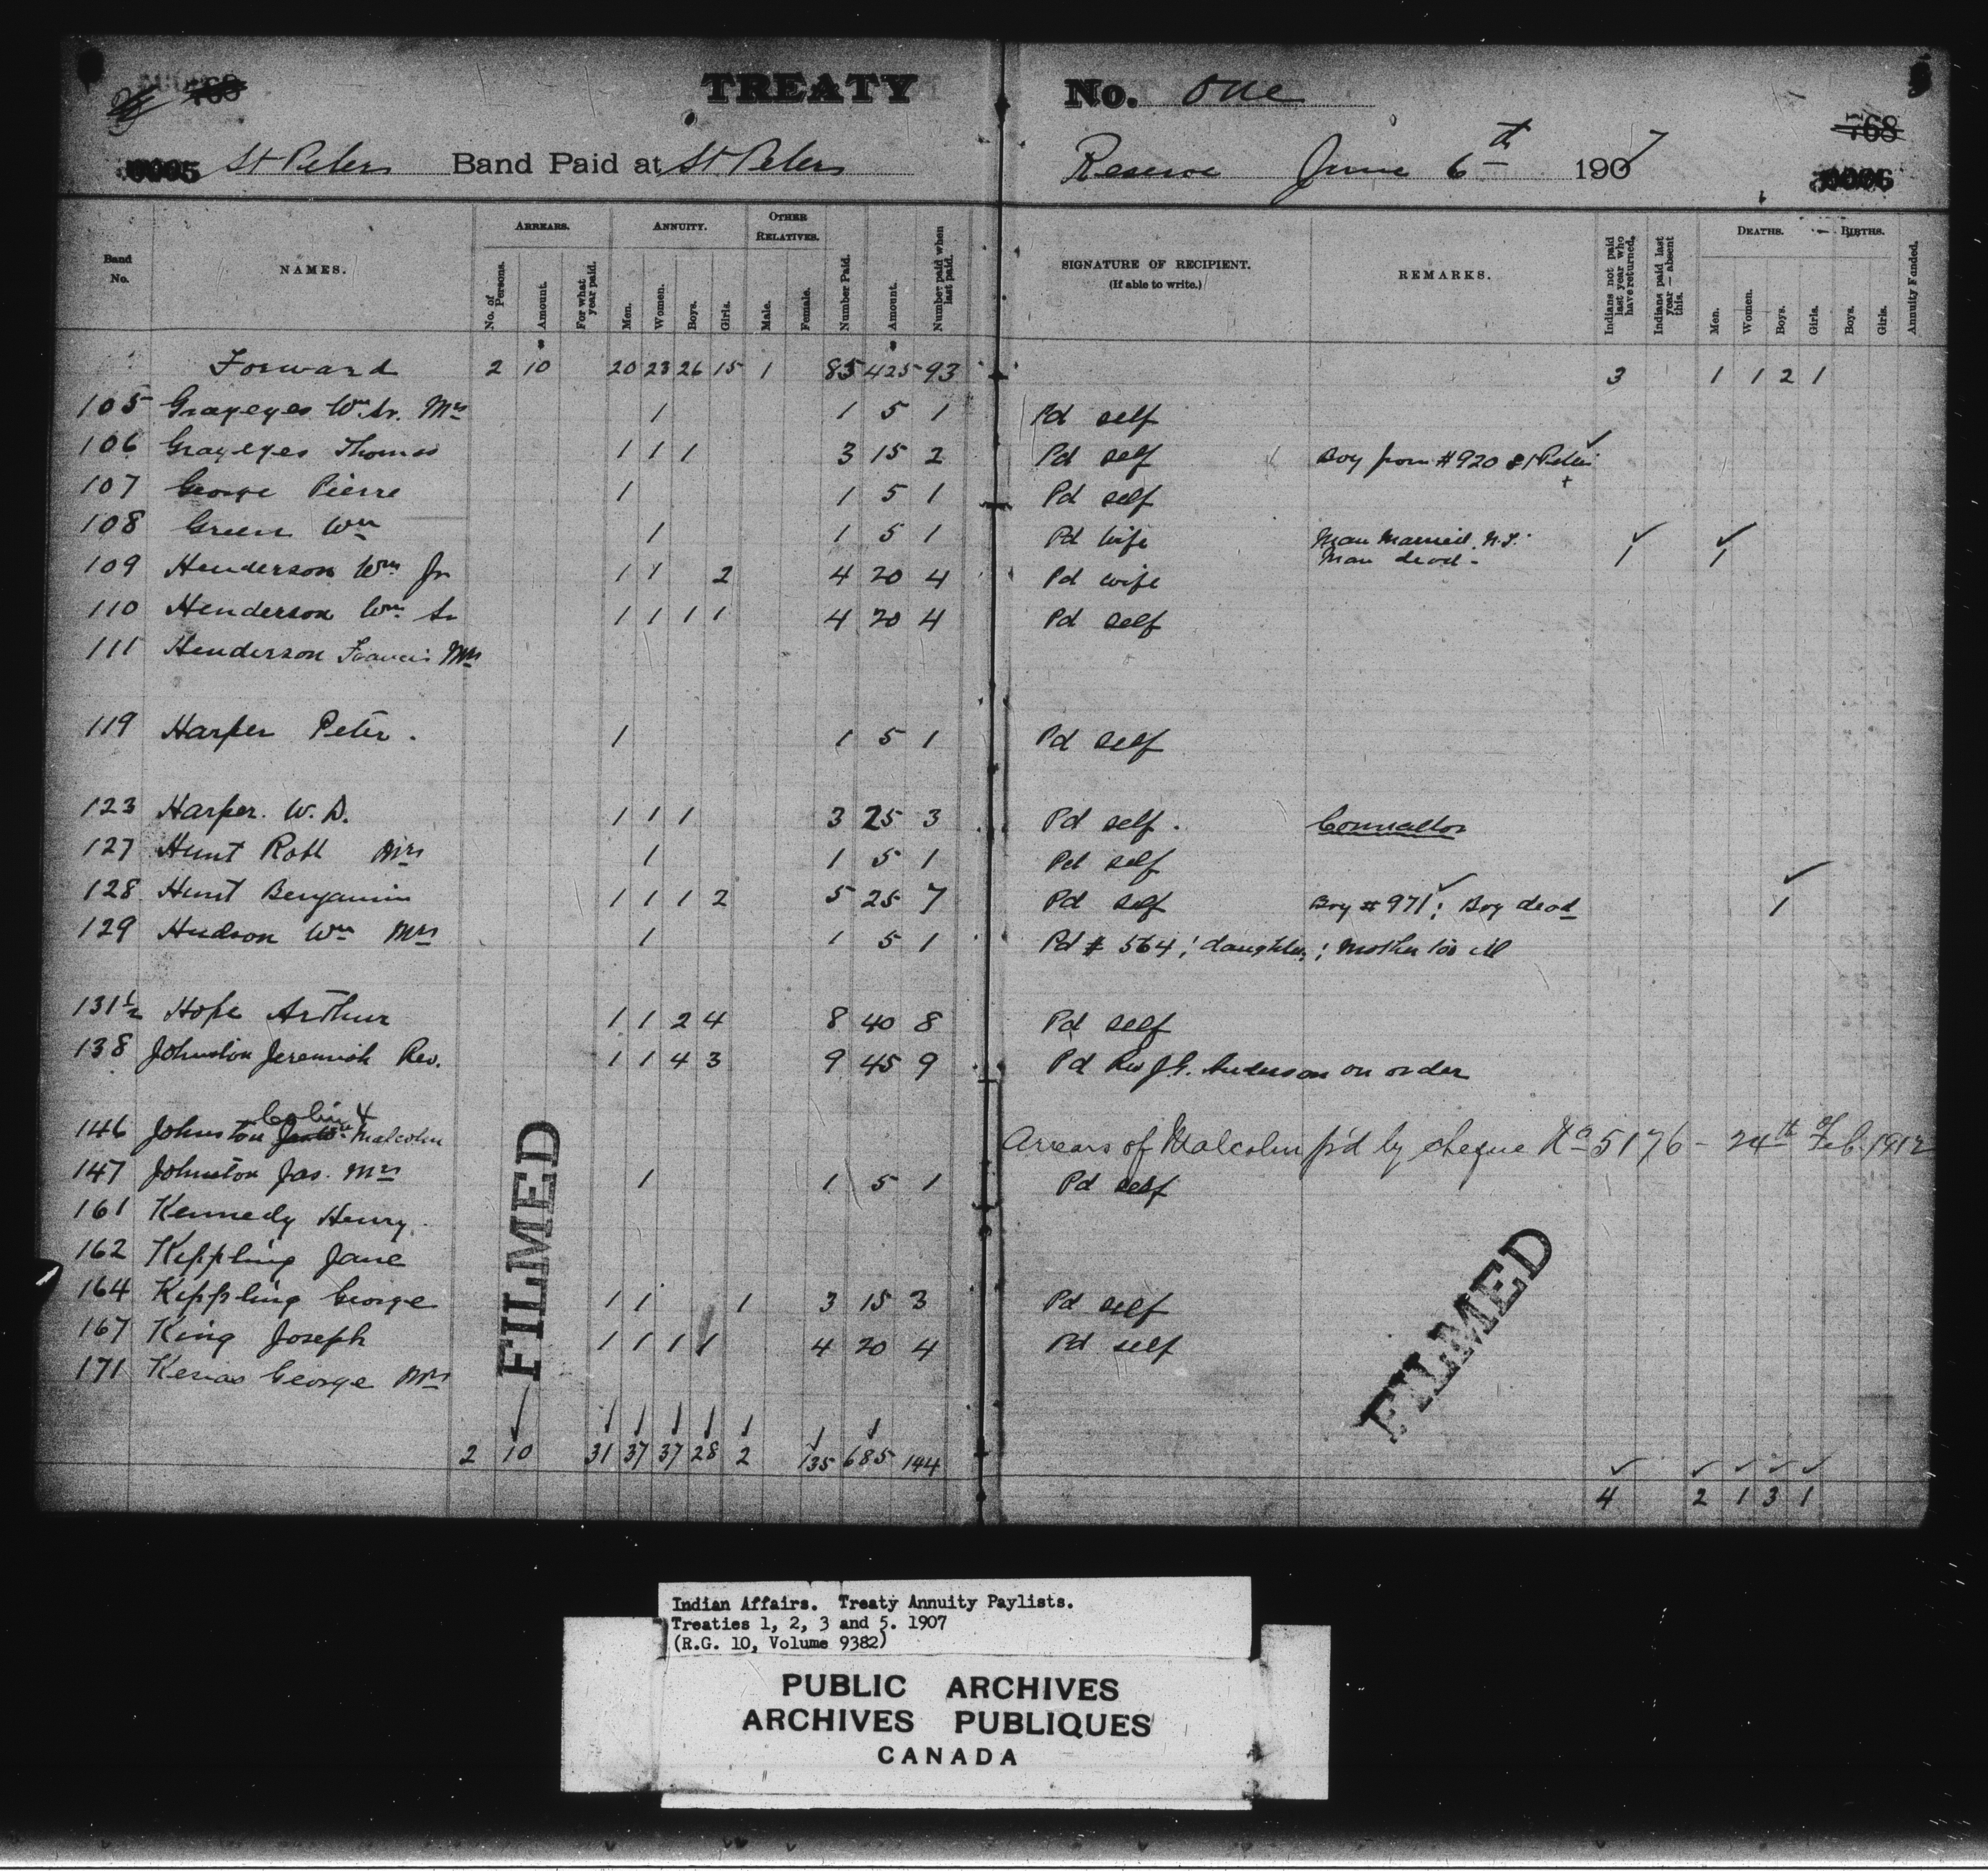 TREATY No. One
768 768
St Peters Band Paid at St Peters Reserve June 6th 1907
Band No. NAMES. ARREARS. ANNUITY. OTHER RELATIVES. SIGNATURE OF RECIPIENT. (If able to write.) REMARKS. DEATHS. BIRTHS.
No. of Persons. Amount. For what year paid. Men. Women. Boys. Girls. Male. Female. Number Paid. Amount. Number paid when last paid. Indians not paid last year who have returned. Indians paid last year—absent this. Men. Women. Boys. Girls. Boys. Girls. Annuity Funded.
Forward 2 10 20 23 26 15 1 85 425 93 3 1 1 2 1
105 Grayeyes Wm Sr. Mrs 1 1 5 1 Pd self
106 Grayeyes Thomas 1 1 1 3 15 2 Pd self Boy from #920 St Peters
107 George Pierre 1 1 5 1 Pd self
108 Green Wm 1 1 5 1 Pd wife Man Married N.T. Man dead - 1 1
109 Henderson Wm Jr 1 1 2 4 20 4 Pd wife
110 Henderson Wm Sr 1 1 1 1 4 20 4 Pd self
111 Henderson Francis Mrs
119 Harper Peter. 1 1 5 1 Pd self
123 Harper. W. D. 1 1 1 3 25 3 Pd self. Councellor
127 Hunt Robt Mrs 1 1 5 1 Pd self
128 Hunt Benjamin 1 1 1 2 5 25 7 Pd self Boy #971; Boy dead 1
129 Hudson Wm Mrs 1 1 5 1 Pd # 564; daughter; Mother too ill
131½ Hope Arthur 1 1 2 4 8 40 8 Pd self
138 Johnston Jeremiah Rev. 1 1 4 3 9 45 9 Pd Rev J.G. Anderson on order
146 Johnston Colin & Malcolm Arrears of Malcolm p'd by cheque No 5176 - 24th of Feb. 1912
147 Johnston Jas. Mrs 1 1 5 1 Pd self
161 Kennedy Henry.
162 Keppling Jane
164 Keppling George 1 1 1 3 15 3 Pd self
167 King Joseph 1 1 1 1 4 20 4 Pd self
171 Kesias George Mrs
2 10 31 37 37 28 2 135 685 144
4 2 1 3 1
FILMED
FILMED
Indian Affairs. Treaty Annuity Paylists.
Treaties 1, 2, 3 and 5. 1907
(R.G. 10, Volume 9382)
PUBLIC ARCHIVES
ARCHIVES PUBLIQUES
CANADA